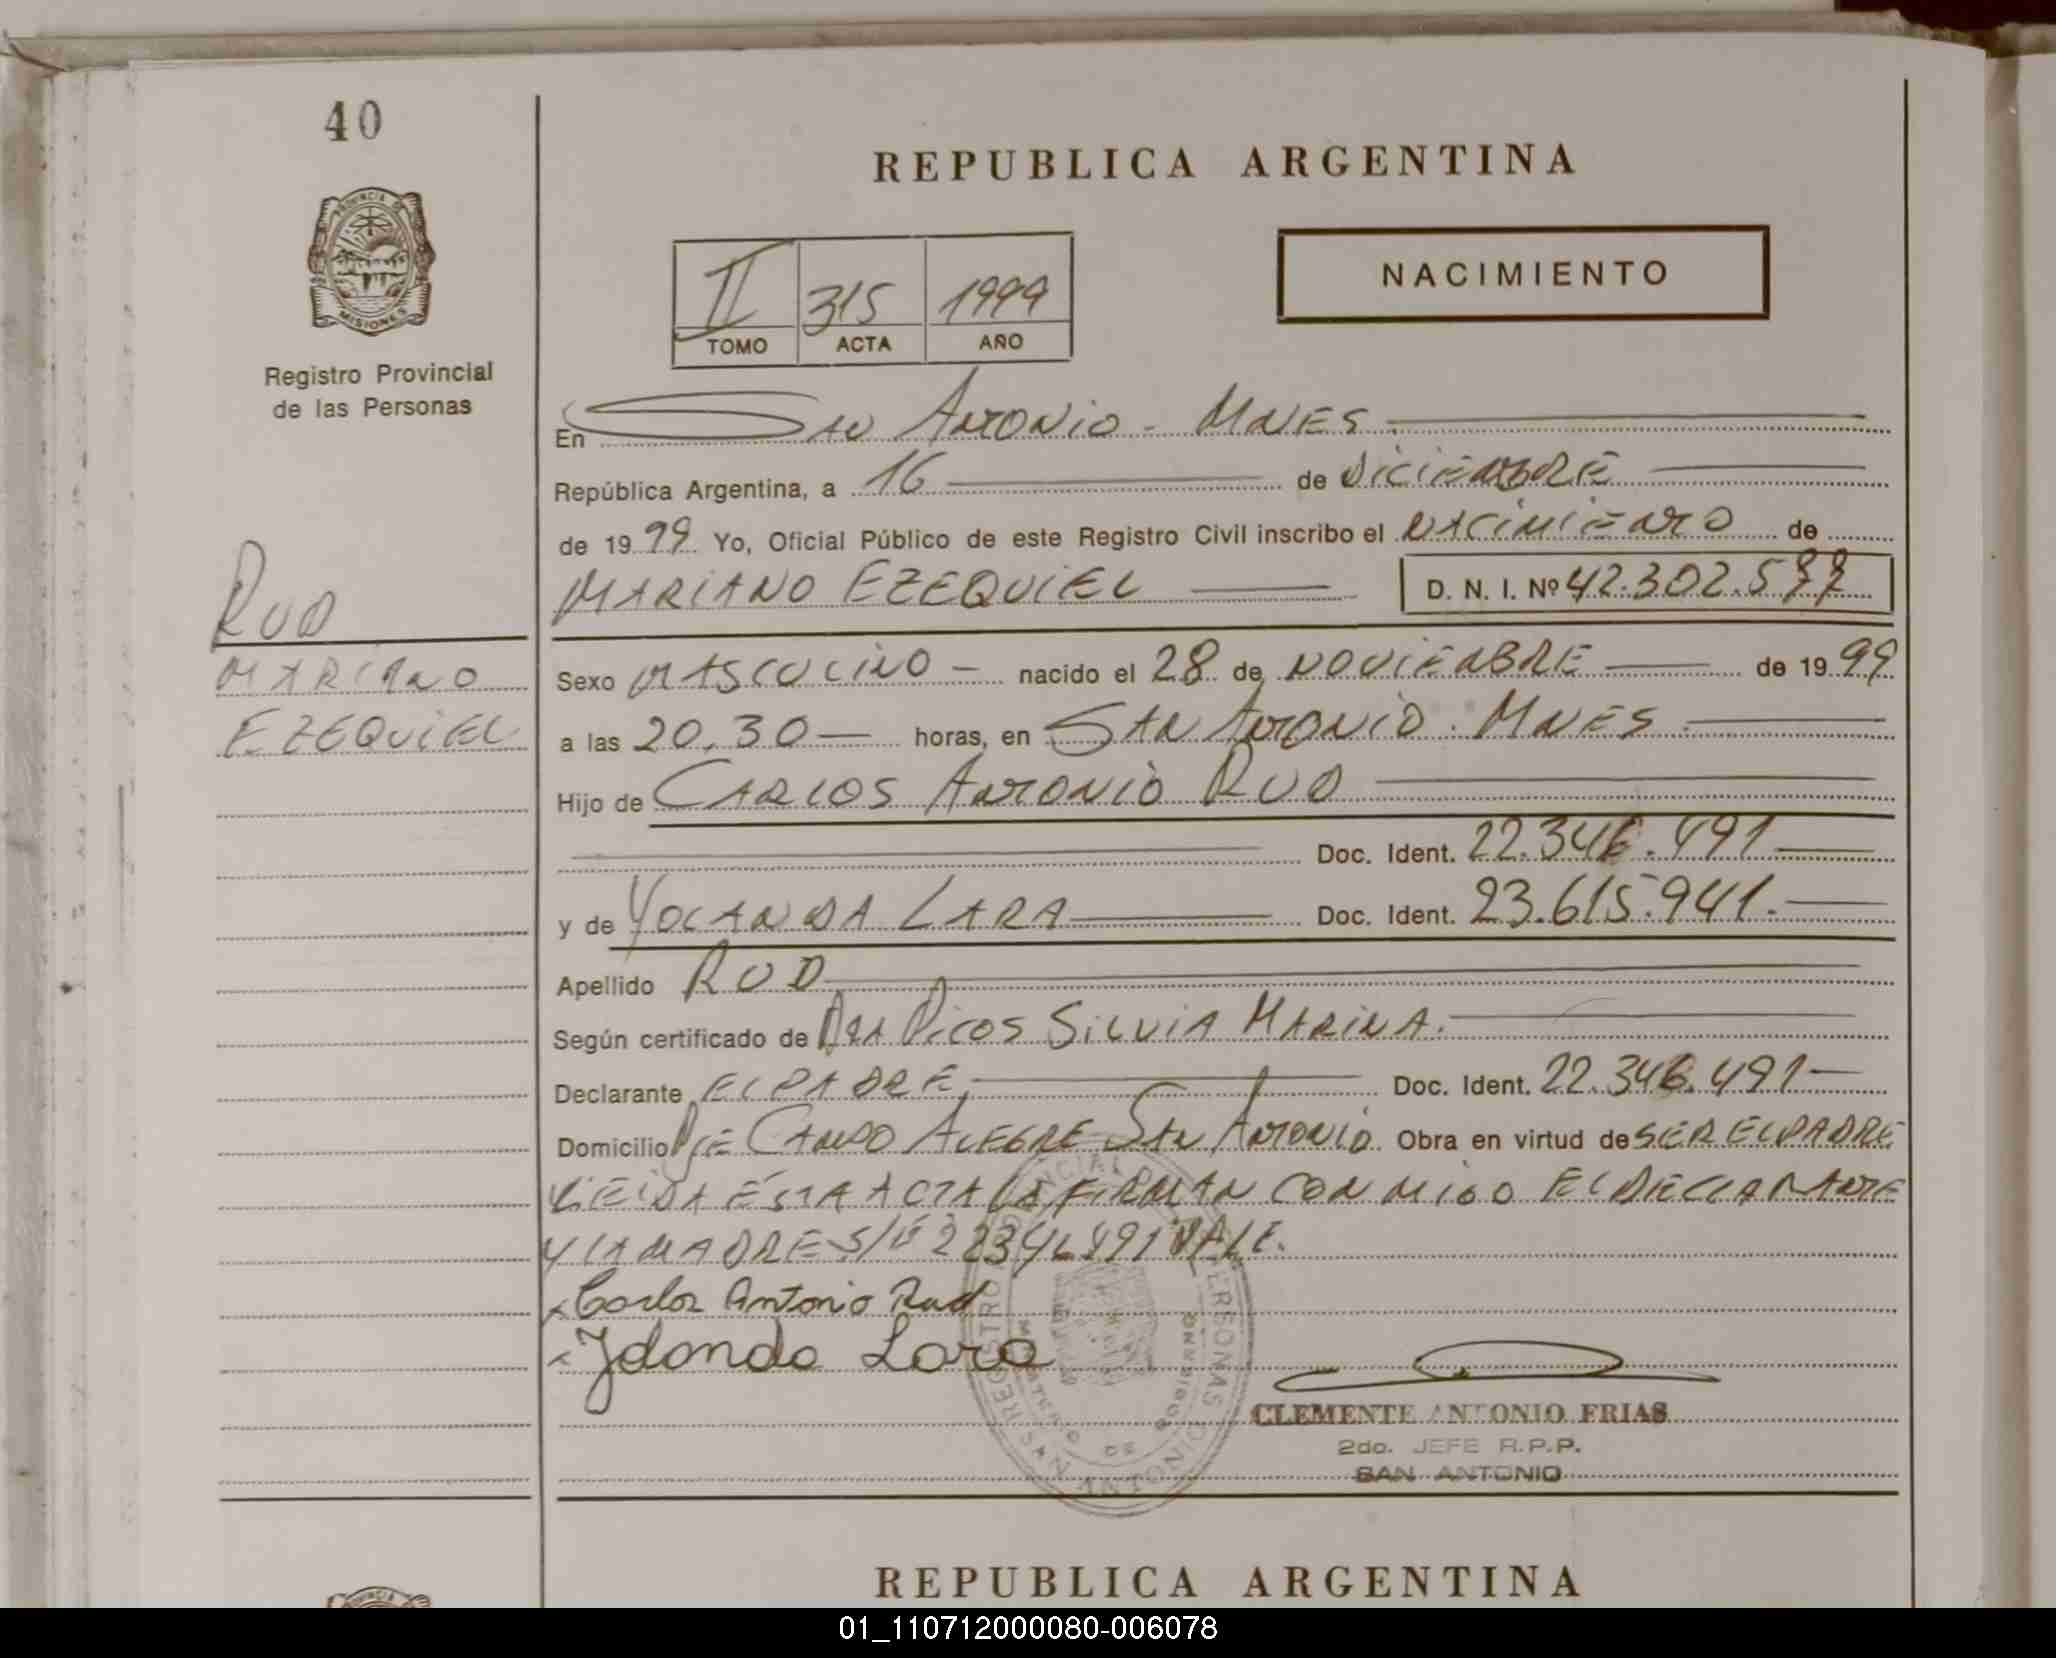 40
REPUBLICA ARGENTINA
PROVINCIA DE
MISIONES
Registro Provincial
de las Personas
II 315 1999
TOMO ACTA AÑO
NACIMIENTO
En San Antonio - Mnes
República Argentina, a 16 de Diciembre
de 1999 Yo, Oficial Público de este Registro Civil inscribo el nacimiento de
MARIANO EZEQUIEL D. N. I. Nº 42.302.577
RUD
MARIANO
EZEQUIEL
Sexo MASCULINO - nacido el 28 de NOVIEMBRE de 1999
a las 20,30 horas, en SAN ANTONIO. MNES
Hijo de CARLOS ANTONIO RUD
Doc. Ident. 22.346.491
y de YOLANDA LARA Doc. Ident. 23.615.941.
Apellido RUD
Según certificado de DRA PICOS SILVIA MARINA.
Declarante EL PADRE Doc. Ident. 22.346.491
Domicilio Pje CAMPO ALEGRE SAN ANTONIO. Obra en virtud de SER EL PADRE
LEIDA ESTA ACTA LA FIRMAN CONMIGO EL DECLARANTE
Y LA MADRE S/R 22346491 VALE.
Carlos Antonio Rud
Jolondo Lara
REGISTRO PROVINCIAL DE LAS PERSONAS
SAN ANTONIO
CLEMENTE ANTONIO FRIAS
2do. JEFE R.P.P.
SAN ANTONIO
REPUBLICA ARGENTINA
01_110712000080-006078